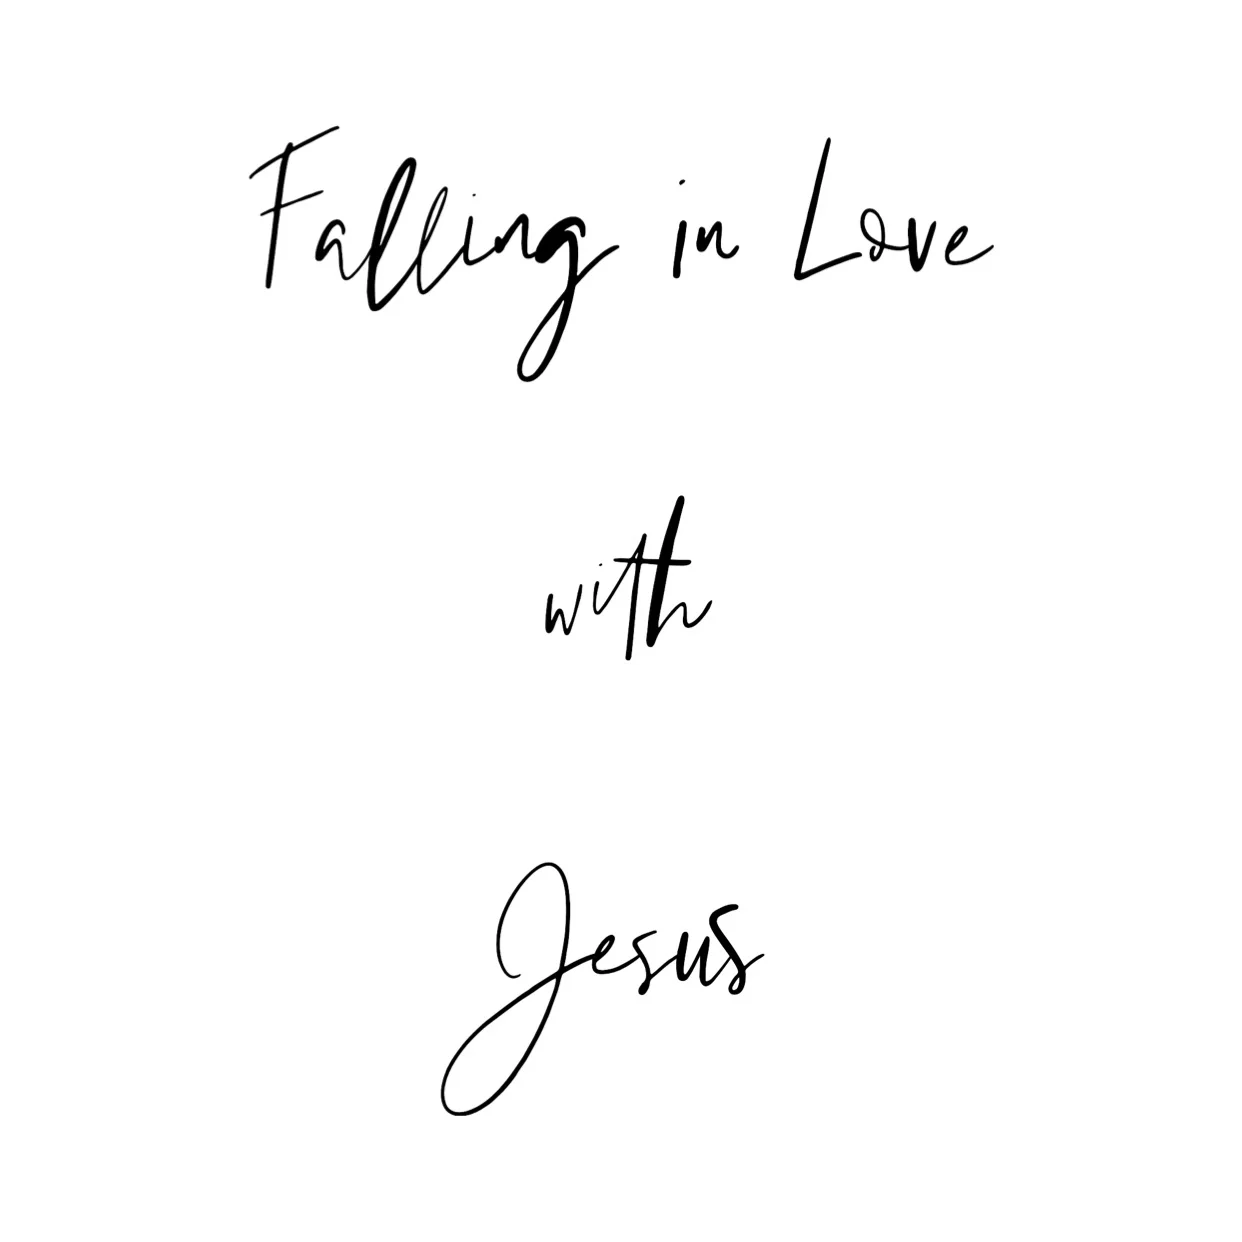 Falling in Love
with
Jesus